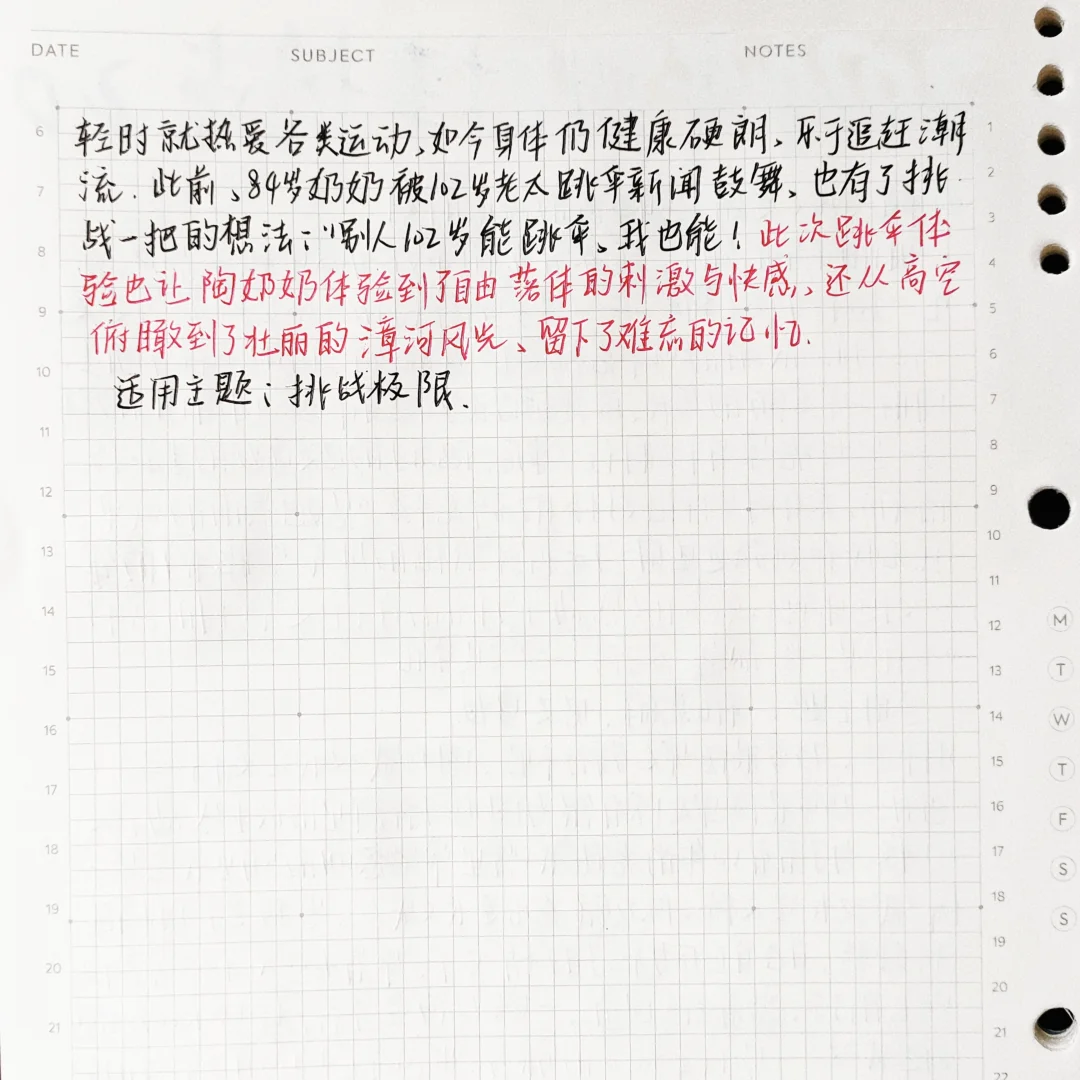 DATE SUBJECT NOTES
轻时就热爱各类运动、如今身体仍健康硬朗、乐于追赶潮
流.此前、84岁奶奶被102岁老太跳伞新闻鼓舞、也有了挑
战一把的想法:"别人102岁能跳伞、我也能!此次跳伞体
验也让陶奶奶体验到了自由落体的刺激与快感、还从高空
俯瞰到了壮丽的漳河风光、留下了难忘的记忆.
适用主题:挑战极限.
6
7
8
9
10
11
12
13
14
15
16
17
18
19
20
21
1
2
3
4
5
6
7
8
9
10
11
12
13
14
15
16
17
18
19
20
21
22
M
T
W
T
F
S
S